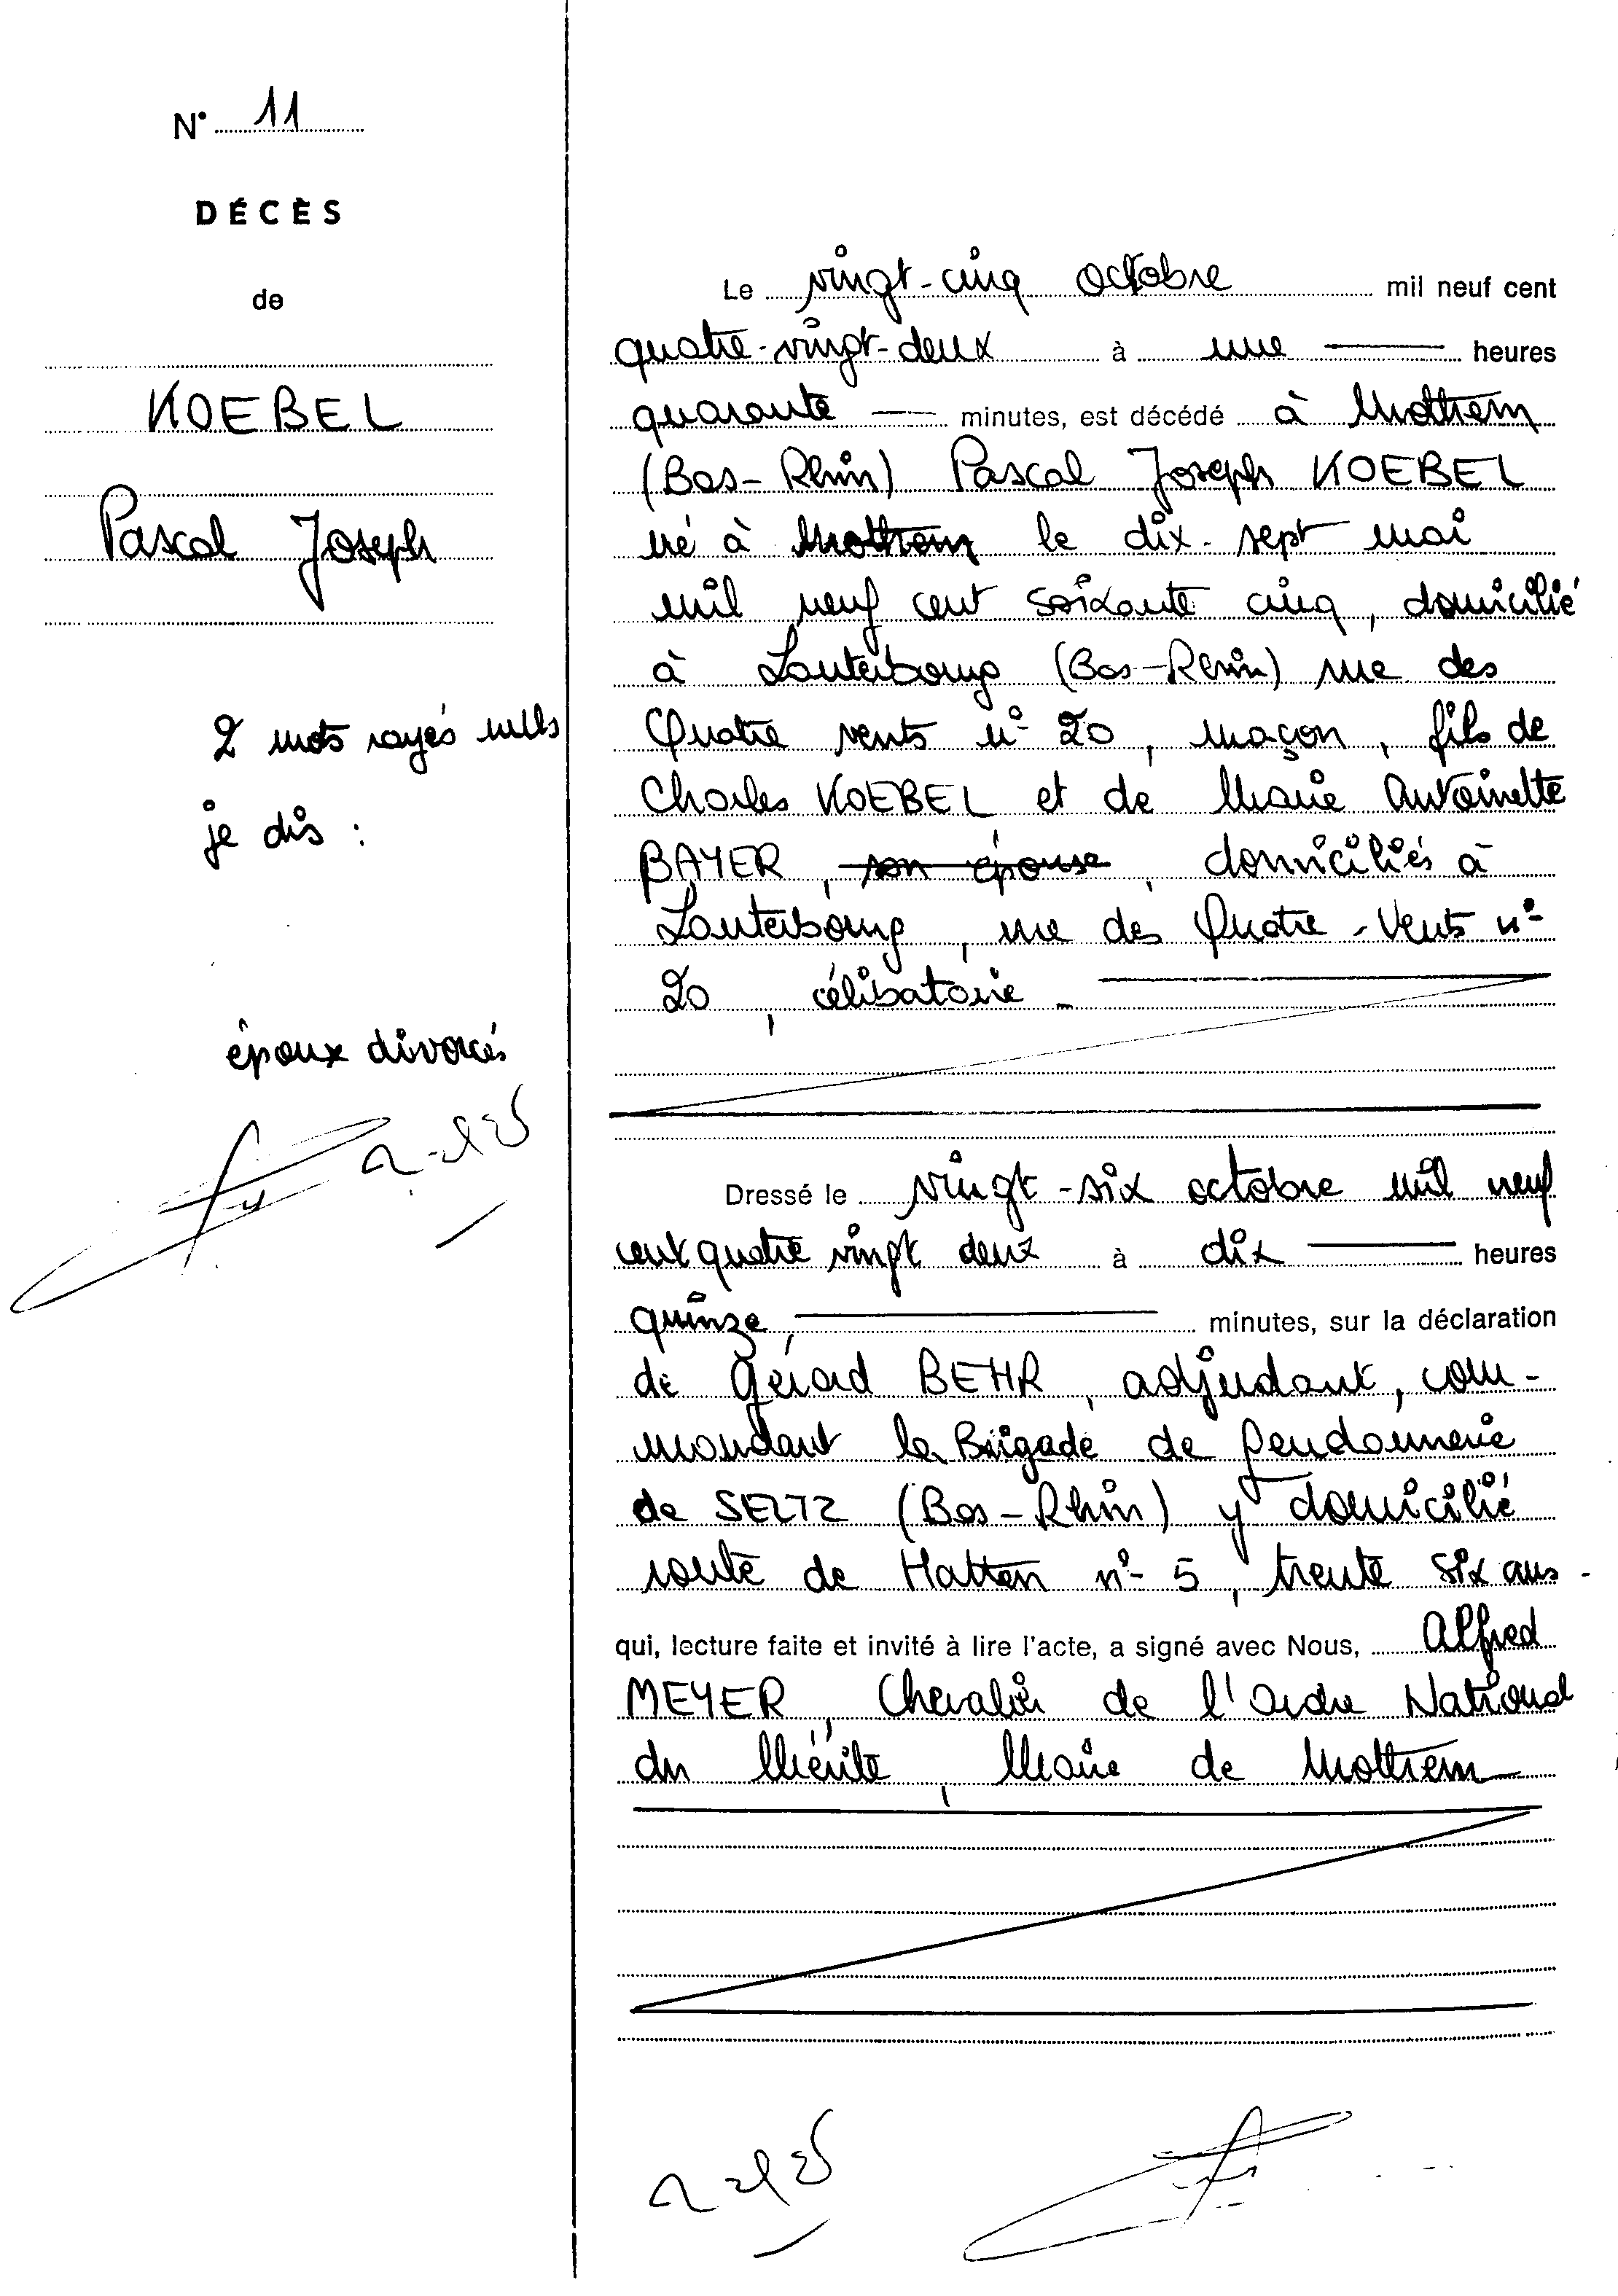 N° 11
DÉCÈS
de
KOEBEL
Pascal Joseph
2 mots rayés nuls
je dis :
époux divorcés
Le vingt-cinq octobre mil neuf cent
quatre-vingt-deux à une heures
quarante minutes, est décédé à Mothern
(Bas-Rhin) Pascal Joseph KOEBEL
né à Mothern le dix-sept mai
mil neuf cent soixante cinq, domicilié
à Lauterbourg (Bas-Rhin) rue des
Quatre vents n° 20, maçon, fils de
Charles KOEBEL et de Marie Antoinette
BAYER, son épouse, domiciliés à
Lauterbourg, rue des Quatre-Vents n°
20, célibataire -
Dressé le vingt-six octobre mil neuf
cent quatre vingt deux à dix heures
quinze, minutes, sur la déclaration
de Gérard BEHR, adjudant, com-
mandant la Brigade de Gendarmerie
de SELTZ (Bas-Rhin) y domicilié
route de Hatten n° 5, trente six ans -
qui, lecture faite et invité à lire l'acte, a signé avec Nous, Alfred
MEYER, Chevalier de l'Ordre National
du Mérite, Maire de Mothern